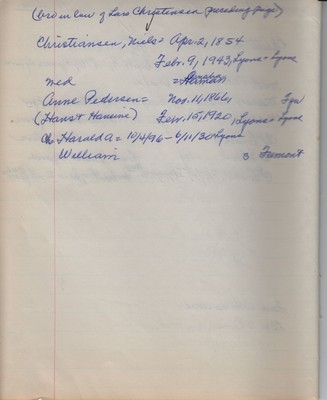 (bro in law of Lars Christensen preceding page)
Christiansen, Niels = Apr. 2, 1854
Febr. 9, 1943, Lyons = Lyons
med =
Anne Pedersen = Nov. 11, 1866, Fyn
(Hans + Hansine) Febr. 15, 1920, Lyons = Lyons
ch Harald A = 10/4/96 - 6/11/30 Lyons
William 3 Fremont